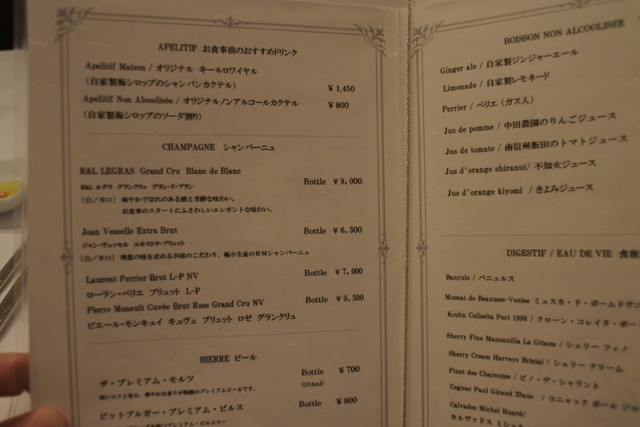 APELITIF お食事前のおすすめドリンク
Apelitif Maison / オリジナル キールロワイヤル
(自家製梅シロップのシャンパンカクテル) ¥ 1,450
Apelitif Non Alcoolisée / オリジナルノンアルコールカクテル ¥ 800
(自家製梅シロップのソーダ割り)
CHAMPAGNE シャンパーニュ
R&L LEGRAS Grand Cru Blanc de Blanc Bottle ¥ 9,000
R&L ルグラ グラングリュ ブラン・ド・ブラン
(白/辛口) 爽やかで
お食事のスタートにふさわしいエレガントな味わい。
Jean Vesselle Extra Brut Bottle ¥ 6,500
ジャン・ヴェッセル エキストラ・ブリュット
(白/辛口)
Laurent Perrier Brut L-P NV Bottle ¥ 7,000
ローラン・ペリエ ブリュット L-P
Pierre Moncuit Cuvée Brut Rose Grand Cru NV Bottle ¥ 9,500
ピエール・モンキュイ キュヴェ ブリュット ロゼ グランクリュ
BIERRE ビール
ザ・プレミアム・モルツ Bottle ¥ 700
ビットブルガー・プレミアム・ピルス Bottle ¥ 800
BOISSON NON ALCOOLISÉE
Ginger ale / 自家製ジンジャーエール
Limonade / 自家製レモネード
Perrier / ペリエ (ガス入)
Jus de pomme / 中田農園のりんごジュース
Jus de tomate / 南信州飯田のトマトジュース
Jus d'orange shiranui / 不知火ジュース
Jus d'orange kiyomi / きよみジュース
DIGESTIF / EAU DE VIE 食後
Banyuls / バニュルス
Muscat de Beaumes-Venise ミュスカ・ド・ボームドヴニ
Krohn Colheita Port 1998 / クローン・コレイタ・ポー
Sherry Fino Manzanilla La Gitana / シェリー フィノ
Sherry Cream Harveys Bristol / シェリー クリーム
Pinot des Charentes / ピノ・デ・シャラント
Cognac Paul Giraud 25ans / コニャック ポール ジ
Calvados Michel Huard/
カルヴァドス ミシェ